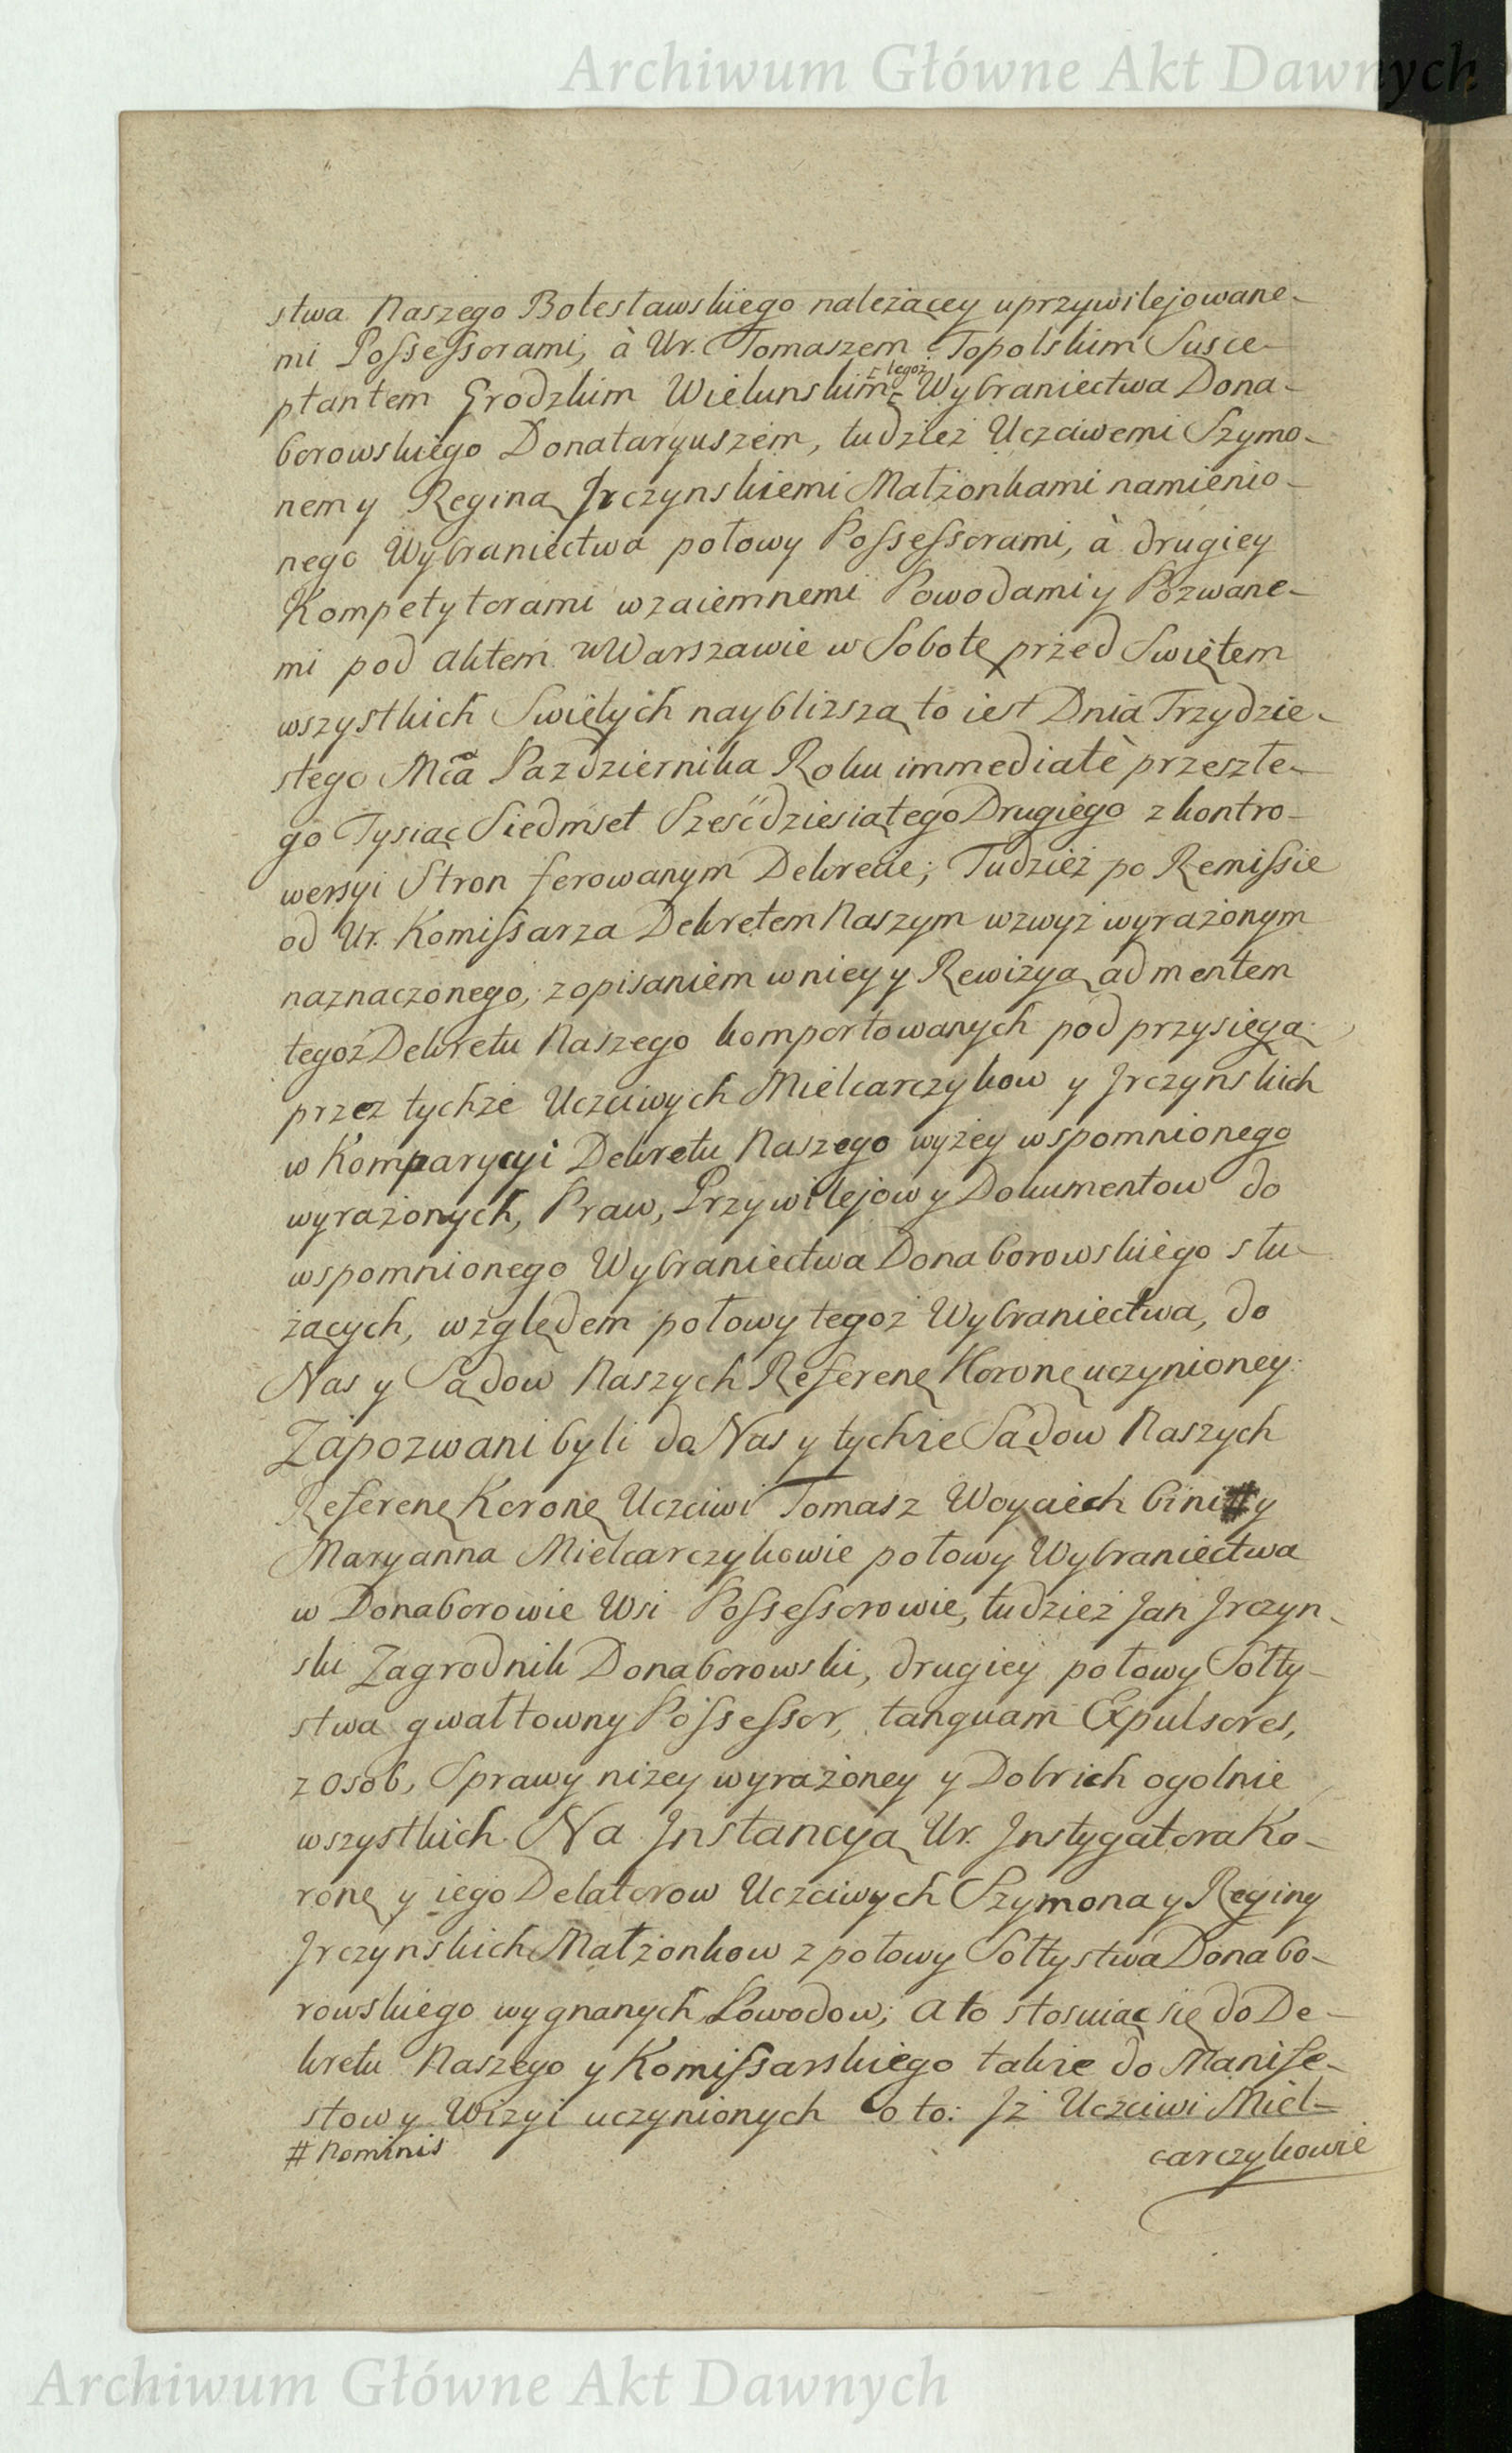 Archiwum Główne Akt Dawnych
stwa Naszego Bolesławskiego należącey uprzywilejowane-
mi Possessorami, à Ur. Tomaszem Topolskim Susce-
ptantem Grodzkim Wielunskim tegoż Wybraniectwa Dona-
borowskiego Donataryuszem, tudzież Uczciwemi Szymo-
nem y Reginą Jrczynskiemi Małżonkami namienio-
nego Wybraniectwa połowy Possessorami, à drugiey
Kompetytorami wzaiemnemi Powodami y Pozwane-
mi pod aktem w Warszawie w Sobotę przed Swiętem
wszystkich Swiętych naybliższą to iest Dnia Trzydzie-
stego Mca Pazdziernika Roku immediatè przeszłe-
go Tysiąc Siedmset Sześćdziesiątego Drugiego z kontro-
wersyi Stron ferowanym Dekrecie; Tudzież po Remissie
od Ur. Komissarza Dekretem Naszym wzwyż wyrażonym
naznaczonego, z opisaniem w niey y Rewizyą ad mentem
tegoż Dekretu Naszego komportowanych pod przysięgą
przez tychże Uczciwych Mielcarczykow y Jrczynskich
w Komparycyi Dekretu Naszego wyżey wspomnionego
wyrażonych, Praw, Przywilejow y Dokumentow do
wspomnionego Wybraniectwa Donaborowskiego słu-
żących, względem połowy tegoż Wybraniectwa, do
Nas y Sądow Naszych Referenę Koronę uczynioney.
Zapozwani byli do Nas y tychże Sądow Naszych
Referenę Koronę Uczciwi Tomasz Woyciech bini # y
Maryanna Mielcarczykowie połowy Wybraniectwa
w Donaborowie Wsi Possessorowie, tudzież Jan Jrczyn-
ski Zagrodnik Donaborowski, drugiey połowy Sołty-
stwa gwałtowny Possessor, tanquam Expulsores,
z Osob, Sprawy niżey wyrażoney y Dobr ich ogolnie
wszystkich. Na Jnstancyą Ur. Jnstygatora Ko-
ronę y iego Delatorow Uczciwych Szymona y Reginy
Jrczynskich Małżonkow z połowy Sołtystwa Donabo-
rowskiego wygnanych Powodow; a to stosuiąc się do De-
kretu Naszego y Komissarskiego także do Manife-
stow y Wizyi uczynionych o to: Jż Uczciwi Miel-
# Nominis
carczykowie
Archiwum Główne Akt Dawnych